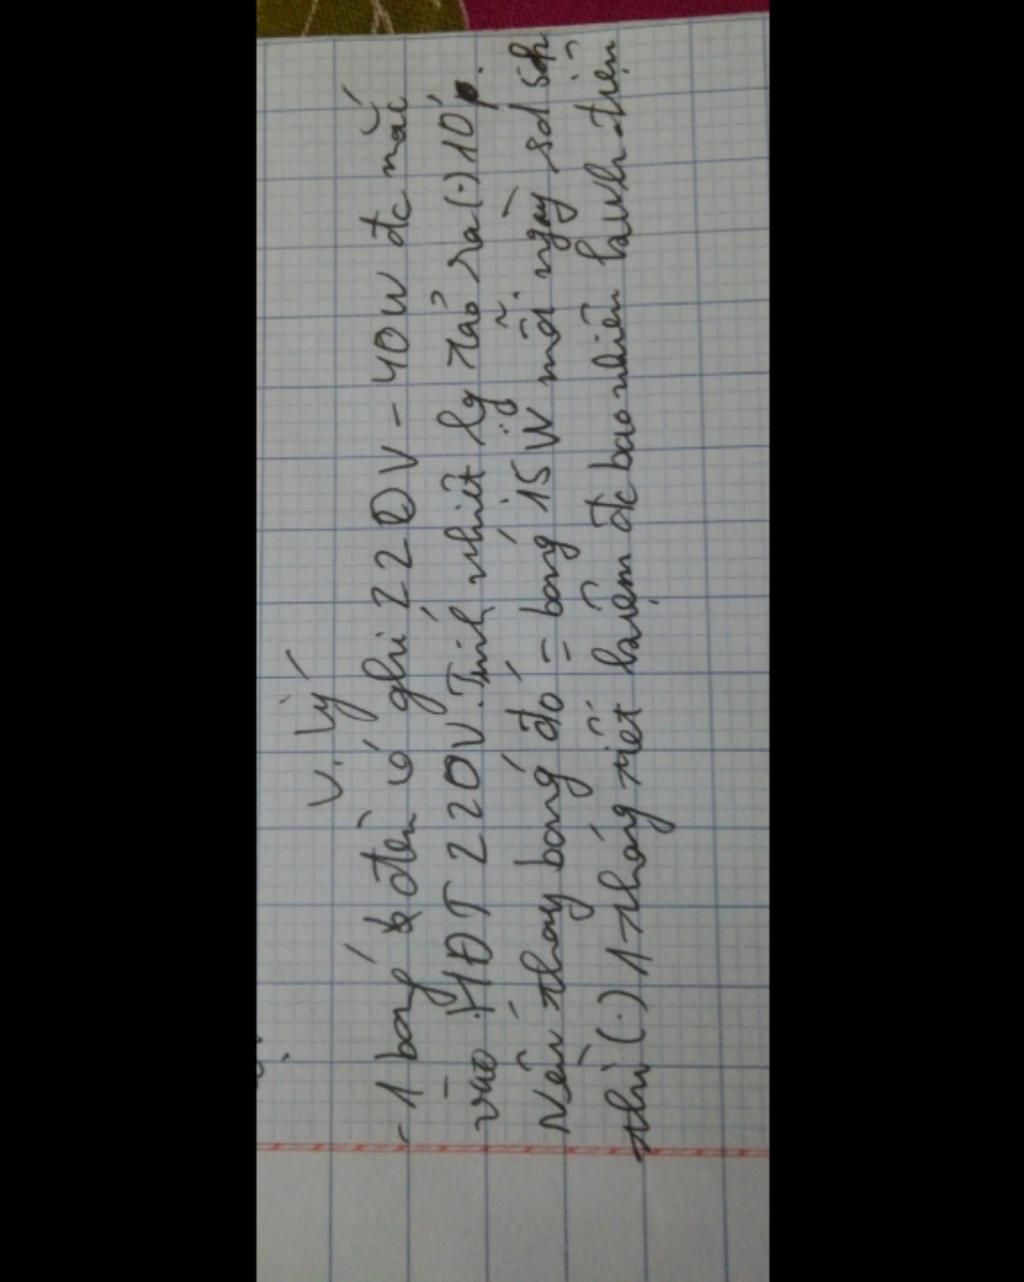 V. Lý
- 1 bóng đèn có ghi 220V - 40W đc mắc
vào HĐT 220V. Tính nhiệt lg tỏa ra (.) 10p.
Nếu thay bóng đó = bóng 15W mỗi ngày sd 5h
thì (.) 1 tháng tiết kiệm đc bao nhiêu tiền